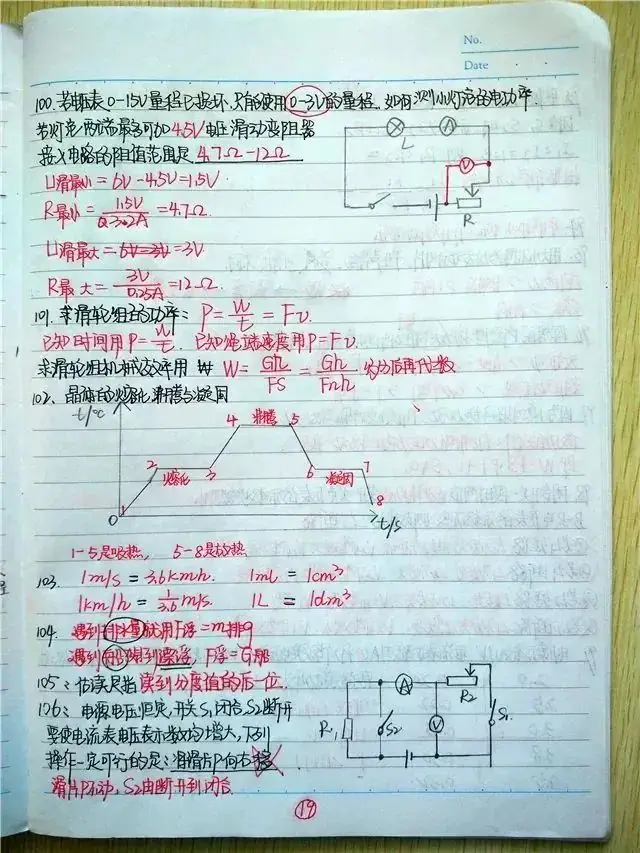 No.
Date
100. 若电压表0-15V量程已损坏,只能使用0-3V的量程,如何测小灯泡的电功率.
若灯泡两端最多可加4.5V电压滑动变阻器
接入电路的阻值范围是 4.7Ω-12Ω
L
A
V
R
U滑最小 = 6V-4.5V=1.5V
R最小 = 1.5V/0.32A = 4.7Ω.
U滑最大 = 6V-3V=3V
R最大 = 3V/0.25A = 12Ω.
101. 求滑轮组的功率: P = W/t = Fv.
已知时间用P=W/t. 已知绳端速度用P=Fv
求滑轮组机械效率用 W = Gh/FS = Gh/Fnh 约分后再代数
102、晶体的熔化,沸腾与凝固
t/℃
4 沸腾 5
2 熔化 3
6 凝固 7
8
0 1
t/s
1-5是吸热, 5-8是放热
103. 1m/s = 3.6km/h. 1mL = 1cm³
1km/h = 1/3.6 m/s. 1L = 1dm³
104. 遇到排水量就用F浮=m排g
遇到船想到漂浮, F浮=G船
105: 估读是指读到分度值的后一位.
106: 电源电压恒定,开关S₁闭合,S₂断开
要使电流表电压表示数均增大,下列
操作一定可行的是:滑片P向右移
滑片P不动,S₂由断开到闭合
A
R₂
R₁
S₂
V
S₁
19